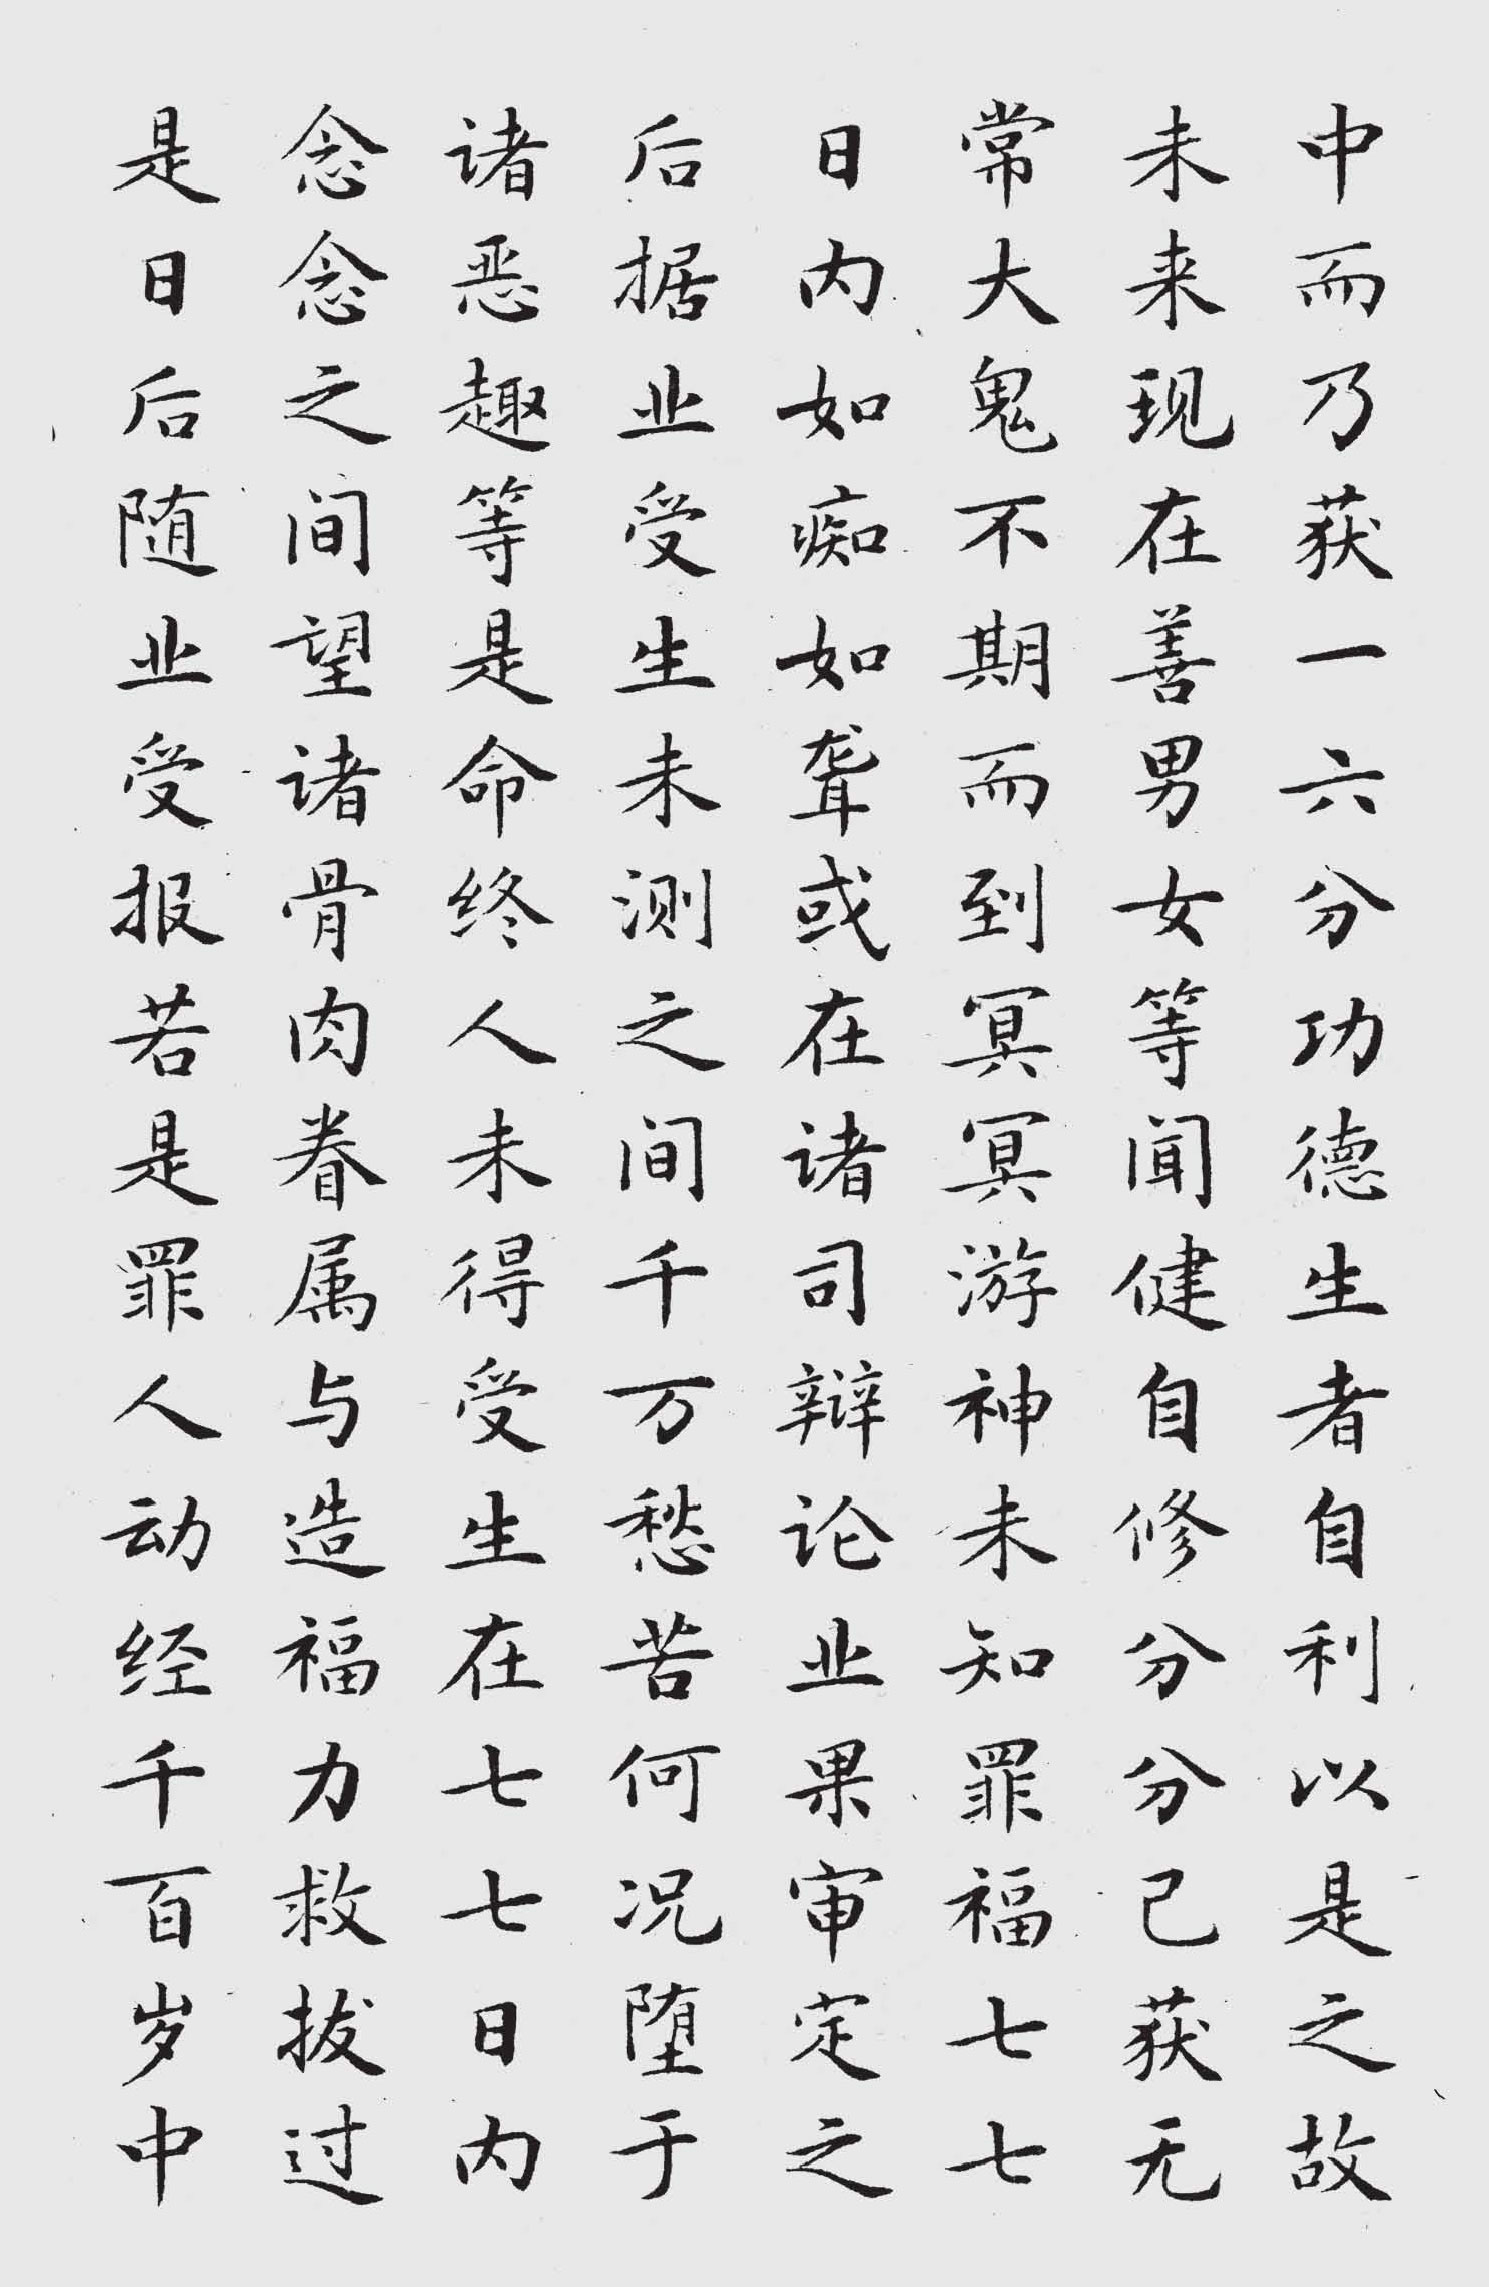 中而乃获一六分功德生者自利以是之故
未来现在善男女等闻健自修分分己获无
常大鬼不期而到冥冥游神未知罪福七七
日内如痴如聋或在诸司辩论业果审定之
后据业受生未测之间千万愁苦何况堕于
诸恶趣等是命终人未得受生在七七日内
念念之间望诸骨肉眷属与造福力救拔过
是日后随业受报若是罪人动经千百岁中